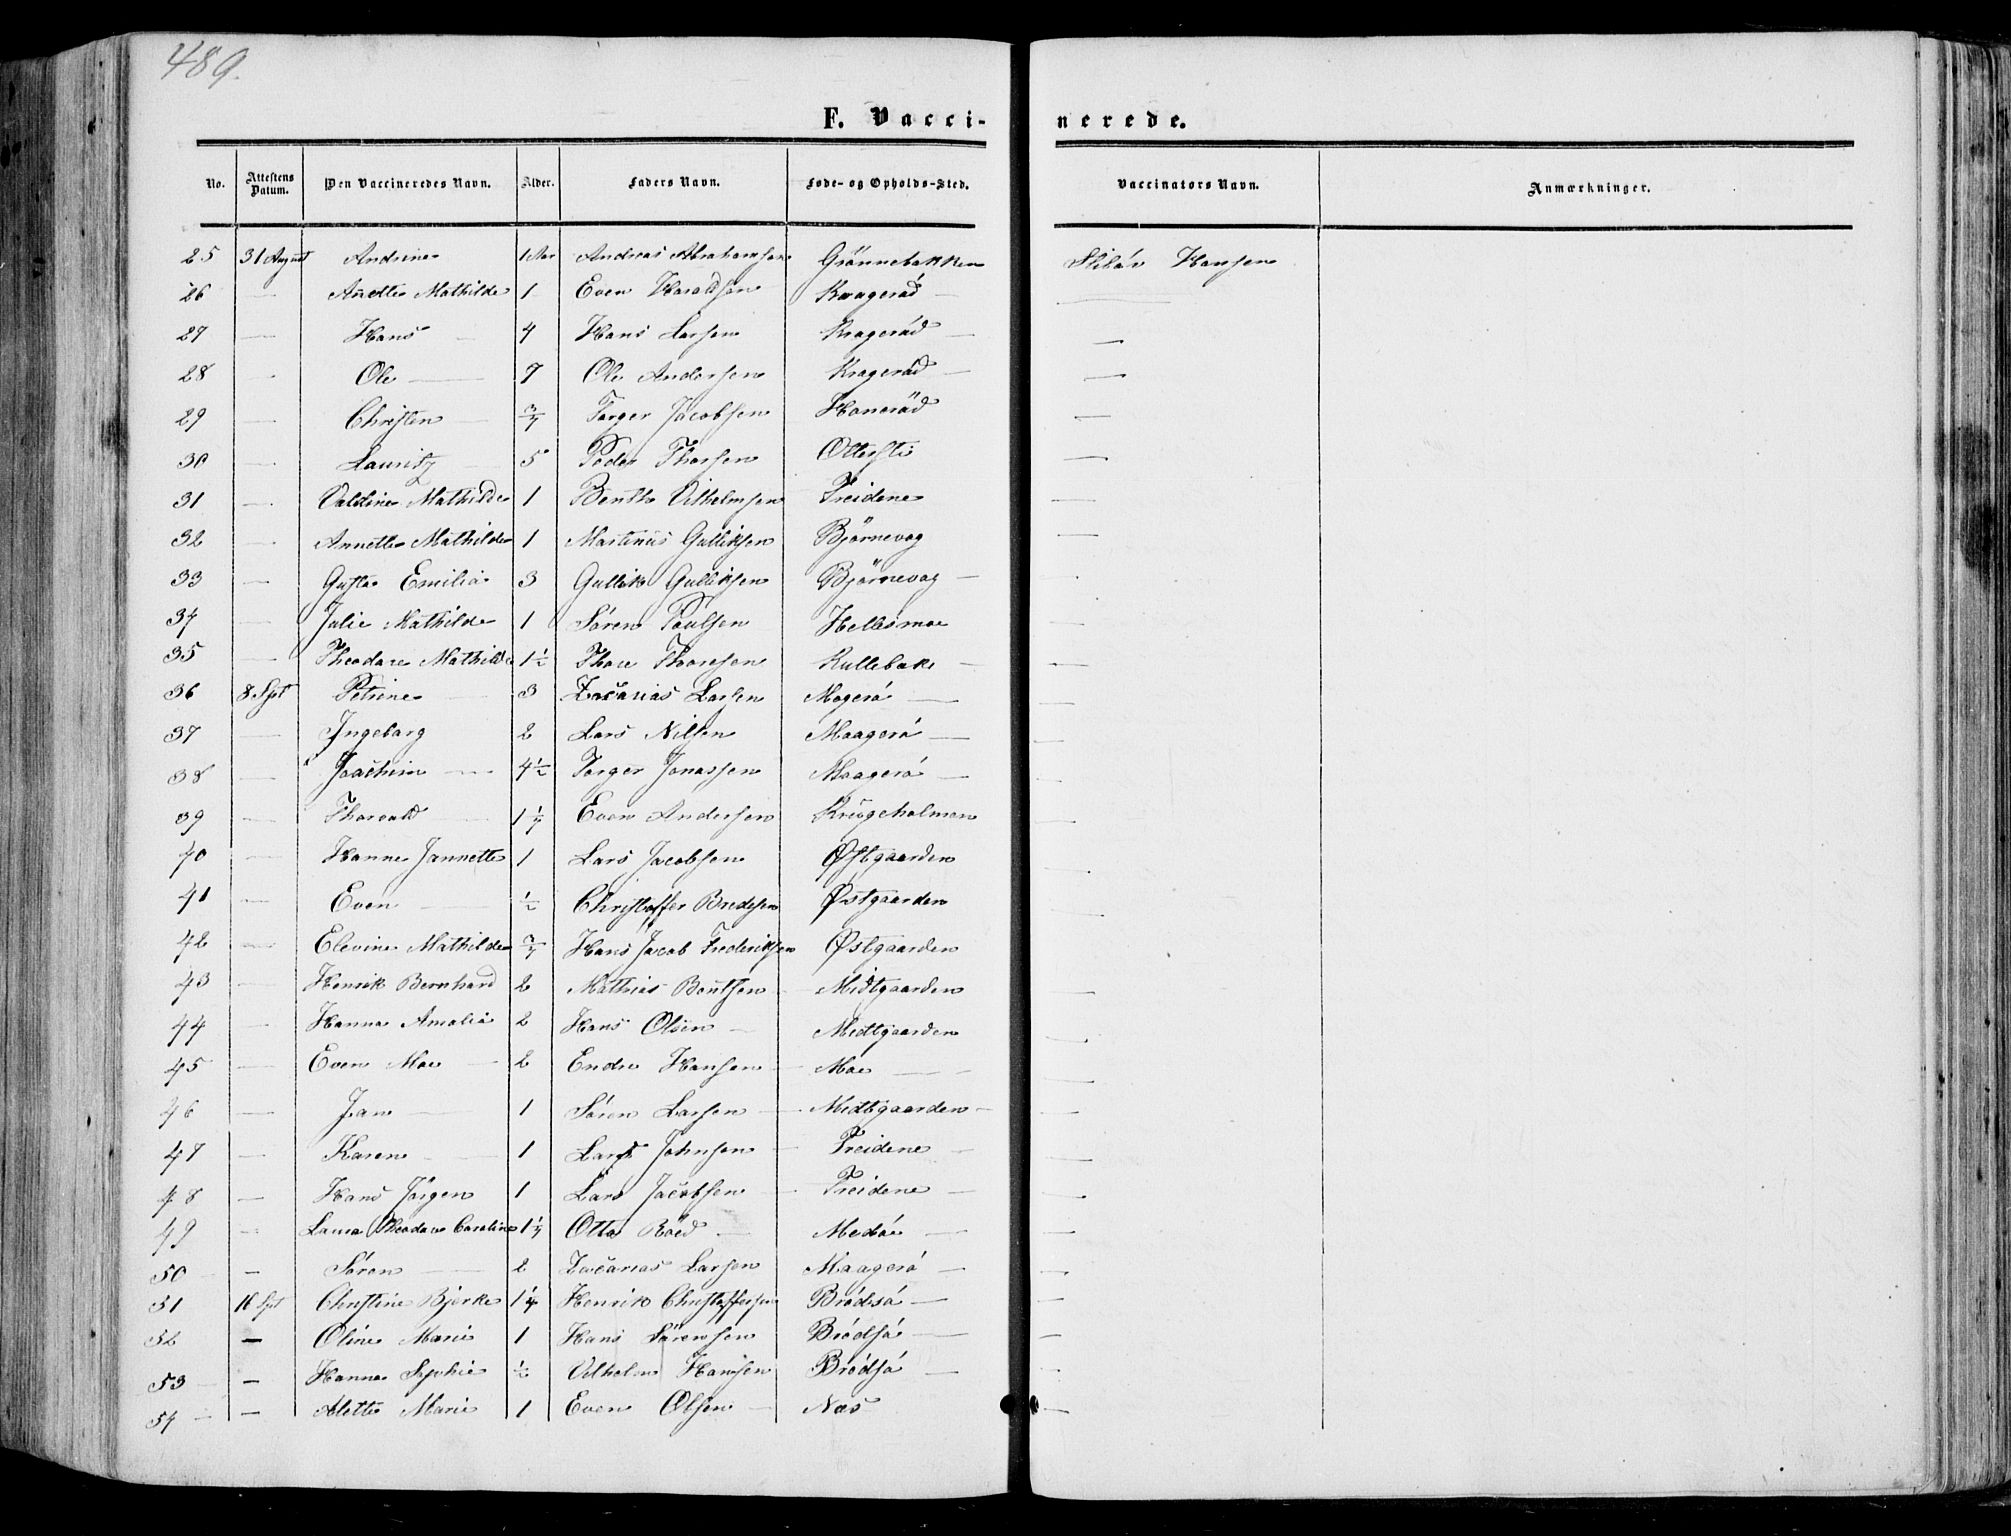 489.
F. Vacci- nerede.
No. Attestens Datum. Den Vaccineredes Navn. Alder. Faders Navn. Føde- og Opholds-Sted. Vaccinators Navn. Anmærkninger.
25 31 August Andrine 1 Aar Andreas Abrahamsen Grönnebakken Hansen
26 — Anette Mathilde 1 Even Haraldsen Krageröd —
27 — Hans — 4 Hans Larsen Krageröd — —
28 — Ole — 7 Ole Andersen Krageröd — —
29 — Christen — 3/4 Torger Jacobsen Haneröd —
30 — Lauritz — 5 Peder Thorsen Ottersti —
31 — Valdine Mathilde 1 Benth Vilhelmsen Treidene —
32 — Annette Mathilde 1 Martinus Gulliksen Björnevag —
33 — Gusta Emilia 3 Gullik Gulliksen Björnevag —
34 — Julie Mathilde 1 Sören Poulsen Hellesmoe —
35 — Theodare Mathilde 1½ Thore Thoresen Rullebak — —
36 8 Spt Petrine — 3 Zacarias Larsen Magerö — —
37 — Ingebarg 2 Lars Nilsen Maagerö — —
38 — Joachim — 4½ Torger Jonassen Maagerö — —
39 — Thorvald — 1¼ Even Andersen Krogeholmen —
40 — Hanne Jannette 1 Lars Jacobsen Østgaarden —
41 — Even — ½ Christoffer Bredesen Østgaarden —
42 — Elevine Mathilde 3/4 Hans Jacob Frederiksen Østgaarden —
43 — Henrik Bernhard 2 Mathias Bentsen — Midtgaarden —
44 — Hanna Amalia 2 Hans Olsen — Midtgaarden —
45 — Even Moe — 2 Endre Hansen — Moe — —
46 — Jan — 1 Sören Larsen — Midtgaarden — —
47 — Karen — 1 Lars Johnsen — Treidene — —
48 — Hans Jörgen 1 Lars Jacobsen — Treidene — —
49 — Laura Theodare Caroline 1¼ Otto Röed — Medöe — —
50 — Sören — 2 Zacarias Larsen Maagerö — —
51 16 Spt Christine Bjerke 1¼ Henrik Christoffersen Brödsö — —
52 — Oline Marie 1 Hans Sörensen Brödsö — —
53 — Hanne Sophie ½ Vilhelm Hansen Brödsö — —
54 — Alette Marie 1 Even Olsen — Næs —